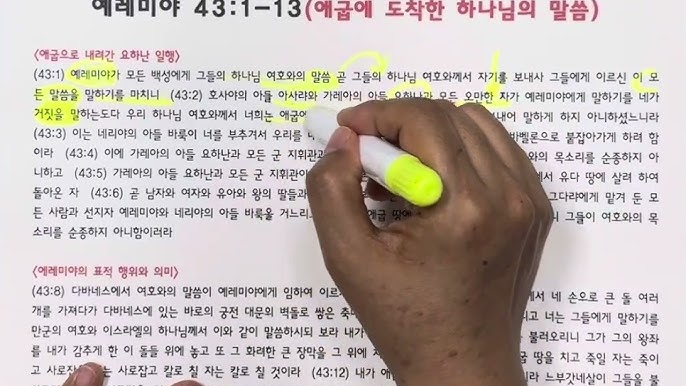 예레미야 43:1-13(애굽에 도착한 하나님의 말씀)
<애굽으로 내려간 요하난 일행>
(43:1) 예레미야가 모든 백성에게 그들의 하나님 여호와의 말씀 곧 그들의 하나님 여호와께서 자기를 보내사 그들에게 이르신 이 모
든 말씀을 말하기를 마치니 (43:2) 호사야의 아들 아사랴와 가레아의 아들 요하난과 모든 오만한 자가 예레미야에게 말하기를 네가
거짓을 말하는도다 우리 하나님 여호와께서 너희는 애굽에 내어 말하게 하지 아니하셨느니라
(43:3) 이는 네리야의 아들 바룩이 너를 부추겨서 우리를 바벨론으로 붙잡아가게 하려 함
이라 (43:4) 이에 가레아의 아들 요하난과 모든 군 지휘관과 와의 목소리를 순종하지 아
니하고 (43:5) 가레아의 아들 요하난과 모든 군 지휘관 에서 유다 땅에 살려 하여
돌아온 자 (43:6) 곧 남자와 여자와 유아와 왕의 딸들과 그다랴에게 맡겨 둔 모
든 사람과 선지자 예레미야와 네리야의 아들 바룩을 거느리고 애굽 땅에 니 그들이 여호와의 목
소리를 순종하지 아니함이러라
<예레미야의 표적 행위와 의미>
(43:8) 다바네스에서 여호와의 말씀이 예레미야에게 임하여 이르 에서 네 손으로 큰 돌 여러
개를 가져다가 다바네스에 있는 바로의 궁전 대문의 벽돌로 쌓은 축대 고 너는 그들에게 말하기를
만군의 여호와 이스라엘의 하나님께서 이와 같이 말씀하시되 보라 내가 불러오리니 그가 그의 왕좌
를 내가 감추게 한 이 돌들 위에 놓고 또 그 화려한 큰 장막을 그 위에 굽 땅을 치고 죽일 자는 죽이
고 사로잡을 자는 사로잡고 칼로 칠 자는 칼로 칠 것이라 (43:12) 내가 느부갓네살이 그들을 불